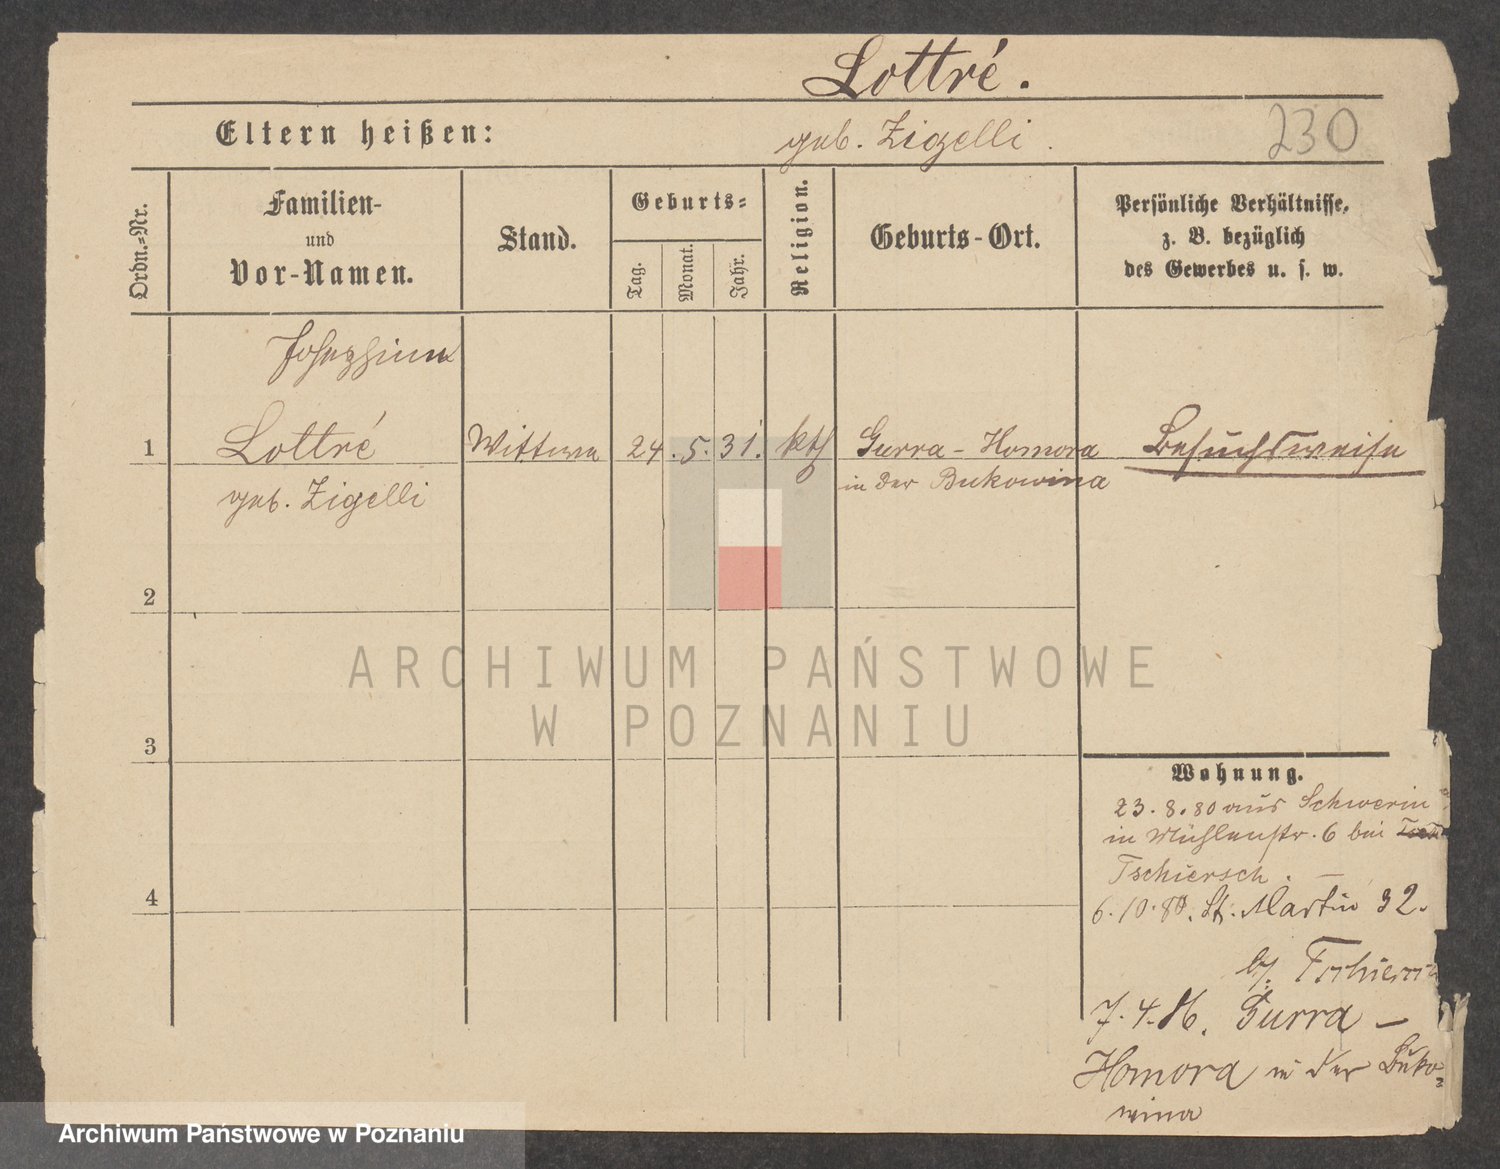 Lottré.
Eltern heißen:
geb. Zigelli.
230
Ordn.=Nr.
Familien-
und
Vor-Namen.
Stand.
Geburts=
Tag.
Monat.
Jahr.
Religion.
Geburts-Ort.
Persönliche Verhältnisse,
z. B. bezüglich
des Gewerbes u. s. w.
Josephine
1 Lottré Wittwe 24. 5. 31. kth Gurra-Homora Besuchsweise
geb. Zigelli in der Bukowina
2
ARCHIWUM PAŃSTWOWE
W POZNANIU
3
Wohnung.
23.8.80 aus Schwerin
in Mühlenstr. 6 bei
Tschiersch. —
4
6.10.80. St. Martin 32.
b/.
7.4.86. Gurra –
Homora in der Buko=
wina
Archiwum Państwowe w Poznaniu